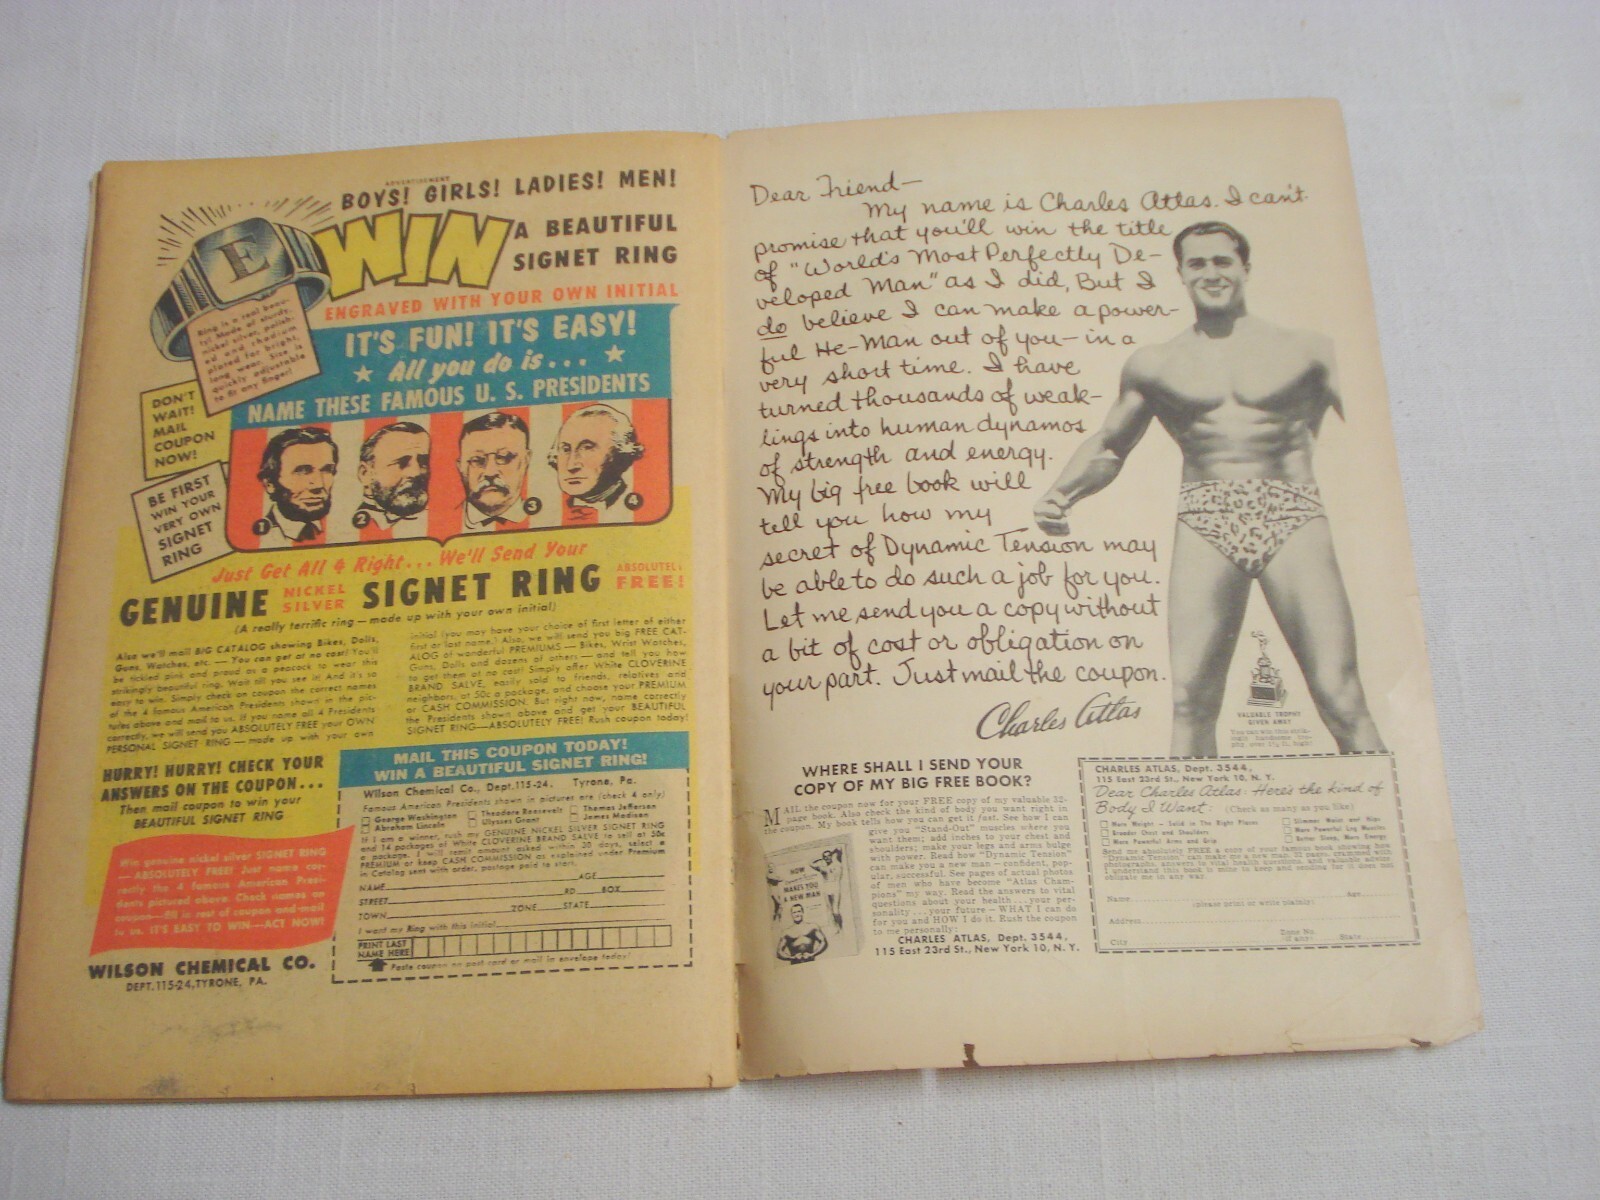 ADVERTISEMENT
BOYS! GIRLS! LADIES! MEN!
WIN
A BEAUTIFUL
SIGNET RING
ENGRAVED WITH YOUR OWN INITIAL
E
Ring is a real beau-
ty! Made of sturdy,
nickel silver, polish-
ed and rhodium
plated for bright,
long wear. Size is
quickly adjustable
to fit any finger!
IT'S FUN! IT'S EASY!
All you do is...
NAME THESE FAMOUS U. S. PRESIDENTS
DON'T
WAIT!
MAIL
COUPON
NOW!
BE FIRST
WIN YOUR
VERY OWN
SIGNET
RING
1
2
3
4
Just Get All 4 Right... We'll Send Your
GENUINE NICKEL SILVER SIGNET RING ABSOLUTELY FREE!
(A really terrific ring — made up with your own initial)
Also we'll mail BIG CATALOG showing Bikes, Dolls,
Guns, Watches, etc. — You can get at no cost! You'll
be tickled pink and proud as a peacock to wear this
strikingly beautiful ring. Wait till you see it! And it's so
easy to win. Simply check on coupon the correct names
of the 4 famous American Presidents shown in the pic-
tures above and mail to us. If you name all 4 Presidents
correctly, we will send you ABSOLUTELY FREE your OWN
PERSONAL SIGNET RING — made up with your own
initial (you may have your choice of first letter of either
first or last name.) Also, we will send you big FREE CAT-
ALOG of wonderful PREMIUMS — Bikes, Wrist Watches,
Guns, Dolls and dozens of others — and tell you how
to get them at no cost! Simply offer White CLOVERINE
BRAND SALVE, easily sold to friends, relatives and
neighbors, at 50c a package, and choose your PREMIUM
or CASH COMMISSION. But right now, name correctly
the Presidents shown above and get your BEAUTIFUL
SIGNET RING—ABSOLUTELY FREE! Rush coupon today!
HURRY! HURRY! CHECK YOUR
ANSWERS ON THE COUPON...
Then mail coupon to win your
BEAUTIFUL SIGNET RING
Win genuine nickel silver SIGNET RING
— ABSOLUTELY FREE! Just name cor-
rectly the 4 famous American Presi-
dents pictured above. Check names on
coupon—fill in rest of coupon and mail
to us. IT'S EASY TO WIN—ACT NOW!
WILSON CHEMICAL CO.
DEPT. 115-24, TYRONE, PA.
MAIL THIS COUPON TODAY!
WIN A BEAUTIFUL SIGNET RING!
Wilson Chemical Co., Dept. 115-24, Tyrone, Pa.
Famous American Presidents shown in pictures are (check 4 only)
George Washington Theodore Roosevelt Thomas Jefferson
Abraham Lincoln Ulysses Grant James Madison
If I am a winner, rush my GENUINE NICKEL SILVER SIGNET RING
and 14 packages of White CLOVERINE BRAND SALVE to sell at 50c
a package. I will remit amount asked within 30 days, select a
PREMIUM or keep CASH COMMISSION as explained under Premium
in Catalog sent with order, postage paid to start.
NAME AGE
STREET RD BOX
TOWN ZONE STATE
I want my Ring with this initial
PRINT LAST
NAME HERE
Paste coupon on post card or mail in envelope today!
Dear Friend—
My name is Charles Atlas. I can't
promise that you'll win the title
of "World's Most Perfectly De-
veloped Man" as I did, But I
do believe I can make a power-
ful He-Man out of you—in a
very short time. I have
turned thousands of weak-
lings into human dynamos
of strength and energy.
My big free book will
tell you how my
secret of Dynamic Tension may
be able to do such a job for you.
Let me send you a copy without
a bit of cost or obligation on
your part. Just mail the coupon.
Charles Atlas
VALUABLE TROPHY
GIVEN AWAY
You can win this strik-
ingly handsome tro-
phy, over 1½ ft. high!
WHERE SHALL I SEND YOUR
COPY OF MY BIG FREE BOOK?
MAIL the coupon now for your FREE copy of my valuable 32-
page book. Also check the kind of body you want right in
the coupon. My book tells how you can get it fast. See how I can
give you "Stand-Out" muscles where you
want them; add inches to your chest and
shoulders; make your legs and arms bulge
with power. Read how "Dynamic Tension"
can make you a new man — confident, pop-
ular, successful. See pages of actual photos
of men who have become "Atlas Cham-
pions" my way. Read the answers to vital
questions about your health...your per-
sonality...your future — WHAT I can do
for you and HOW I do it. Rush the coupon
to me personally:
CHARLES ATLAS, Dept. 3544,
115 East 23rd St., New York 10, N. Y.
HOW
MAKES YOU
A NEW MAN
CHARLES ATLAS, Dept. 3544,
115 East 23rd St., New York 10, N. Y.
Dear Charles Atlas: Here's the kind of
Body I Want: (Check as many as you like)
More Weight — Solid — In The Right Places
Broader Chest and Shoulders
More Powerful Arms and Grip
Slimmer Waist and Hips
More Powerful Leg Muscles
Better Sleep, More Energy
Send me absolutely FREE a copy of your famous book showing how
"Dynamic Tension" can make me a new man. 32 pages, crammed with
photographs, answers to vital health questions, and valuable advice.
I understand this book is mine to keep and sending for it does not
obligate me in any way.
Name Age
(please print or write plainly)
Address
City Zone No. (if any) State